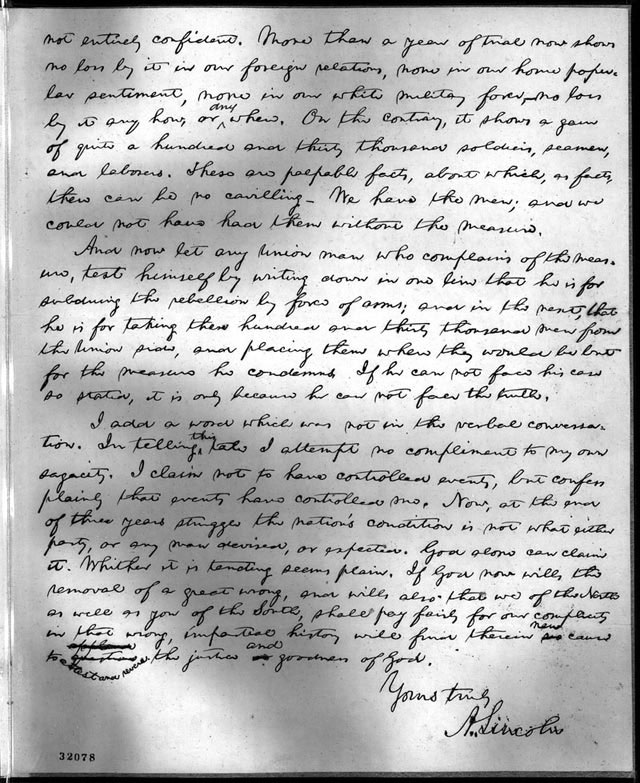 not entirely confident. More than a year of trial now shows
no loss by it in our foreign relations, none in our home popu-
lar sentiment, none in our white military force, no loss
by it any how, or any where. On the contrary, it shows a gain
of quite a hundred and thirty thousand soldiers, seamen,
and laborers. These are palpable facts, about which, as facts,
there can be no cavilling. We have the men; and we
could not have had them without the measure.
And now let any Union man who complains of the meas-
ure, test himself by writing down in one line that he is for
subduing the rebellion by force of arms; and in the next, that
he is for taking these hundred and thirty thousand men from
the Union side, and placing them where they would be but
for the measure he condemns. If he can not face his case
so stated, it is only because he can not face the truth.
I add a word which was not in the verbal conversa-
tion. In telling this tale I attempt no compliment to my own
sagacity. I claim not to have controlled events, but confess
plainly that events have controlled me. Now, at the end
of three years struggle the nation's condition is not what either
party, or any man devised, or expected. God alone can claim
it. Whither it is tending seems plain. If God now wills the
removal of a great wrong, and wills also that we of the North
as well as you of the South, shall pay fairly for our complicity
in that wrong, impartial history will find therein new cause
to attest and revere the justice and goodness of God.
Yours truly
A. Lincoln
32078